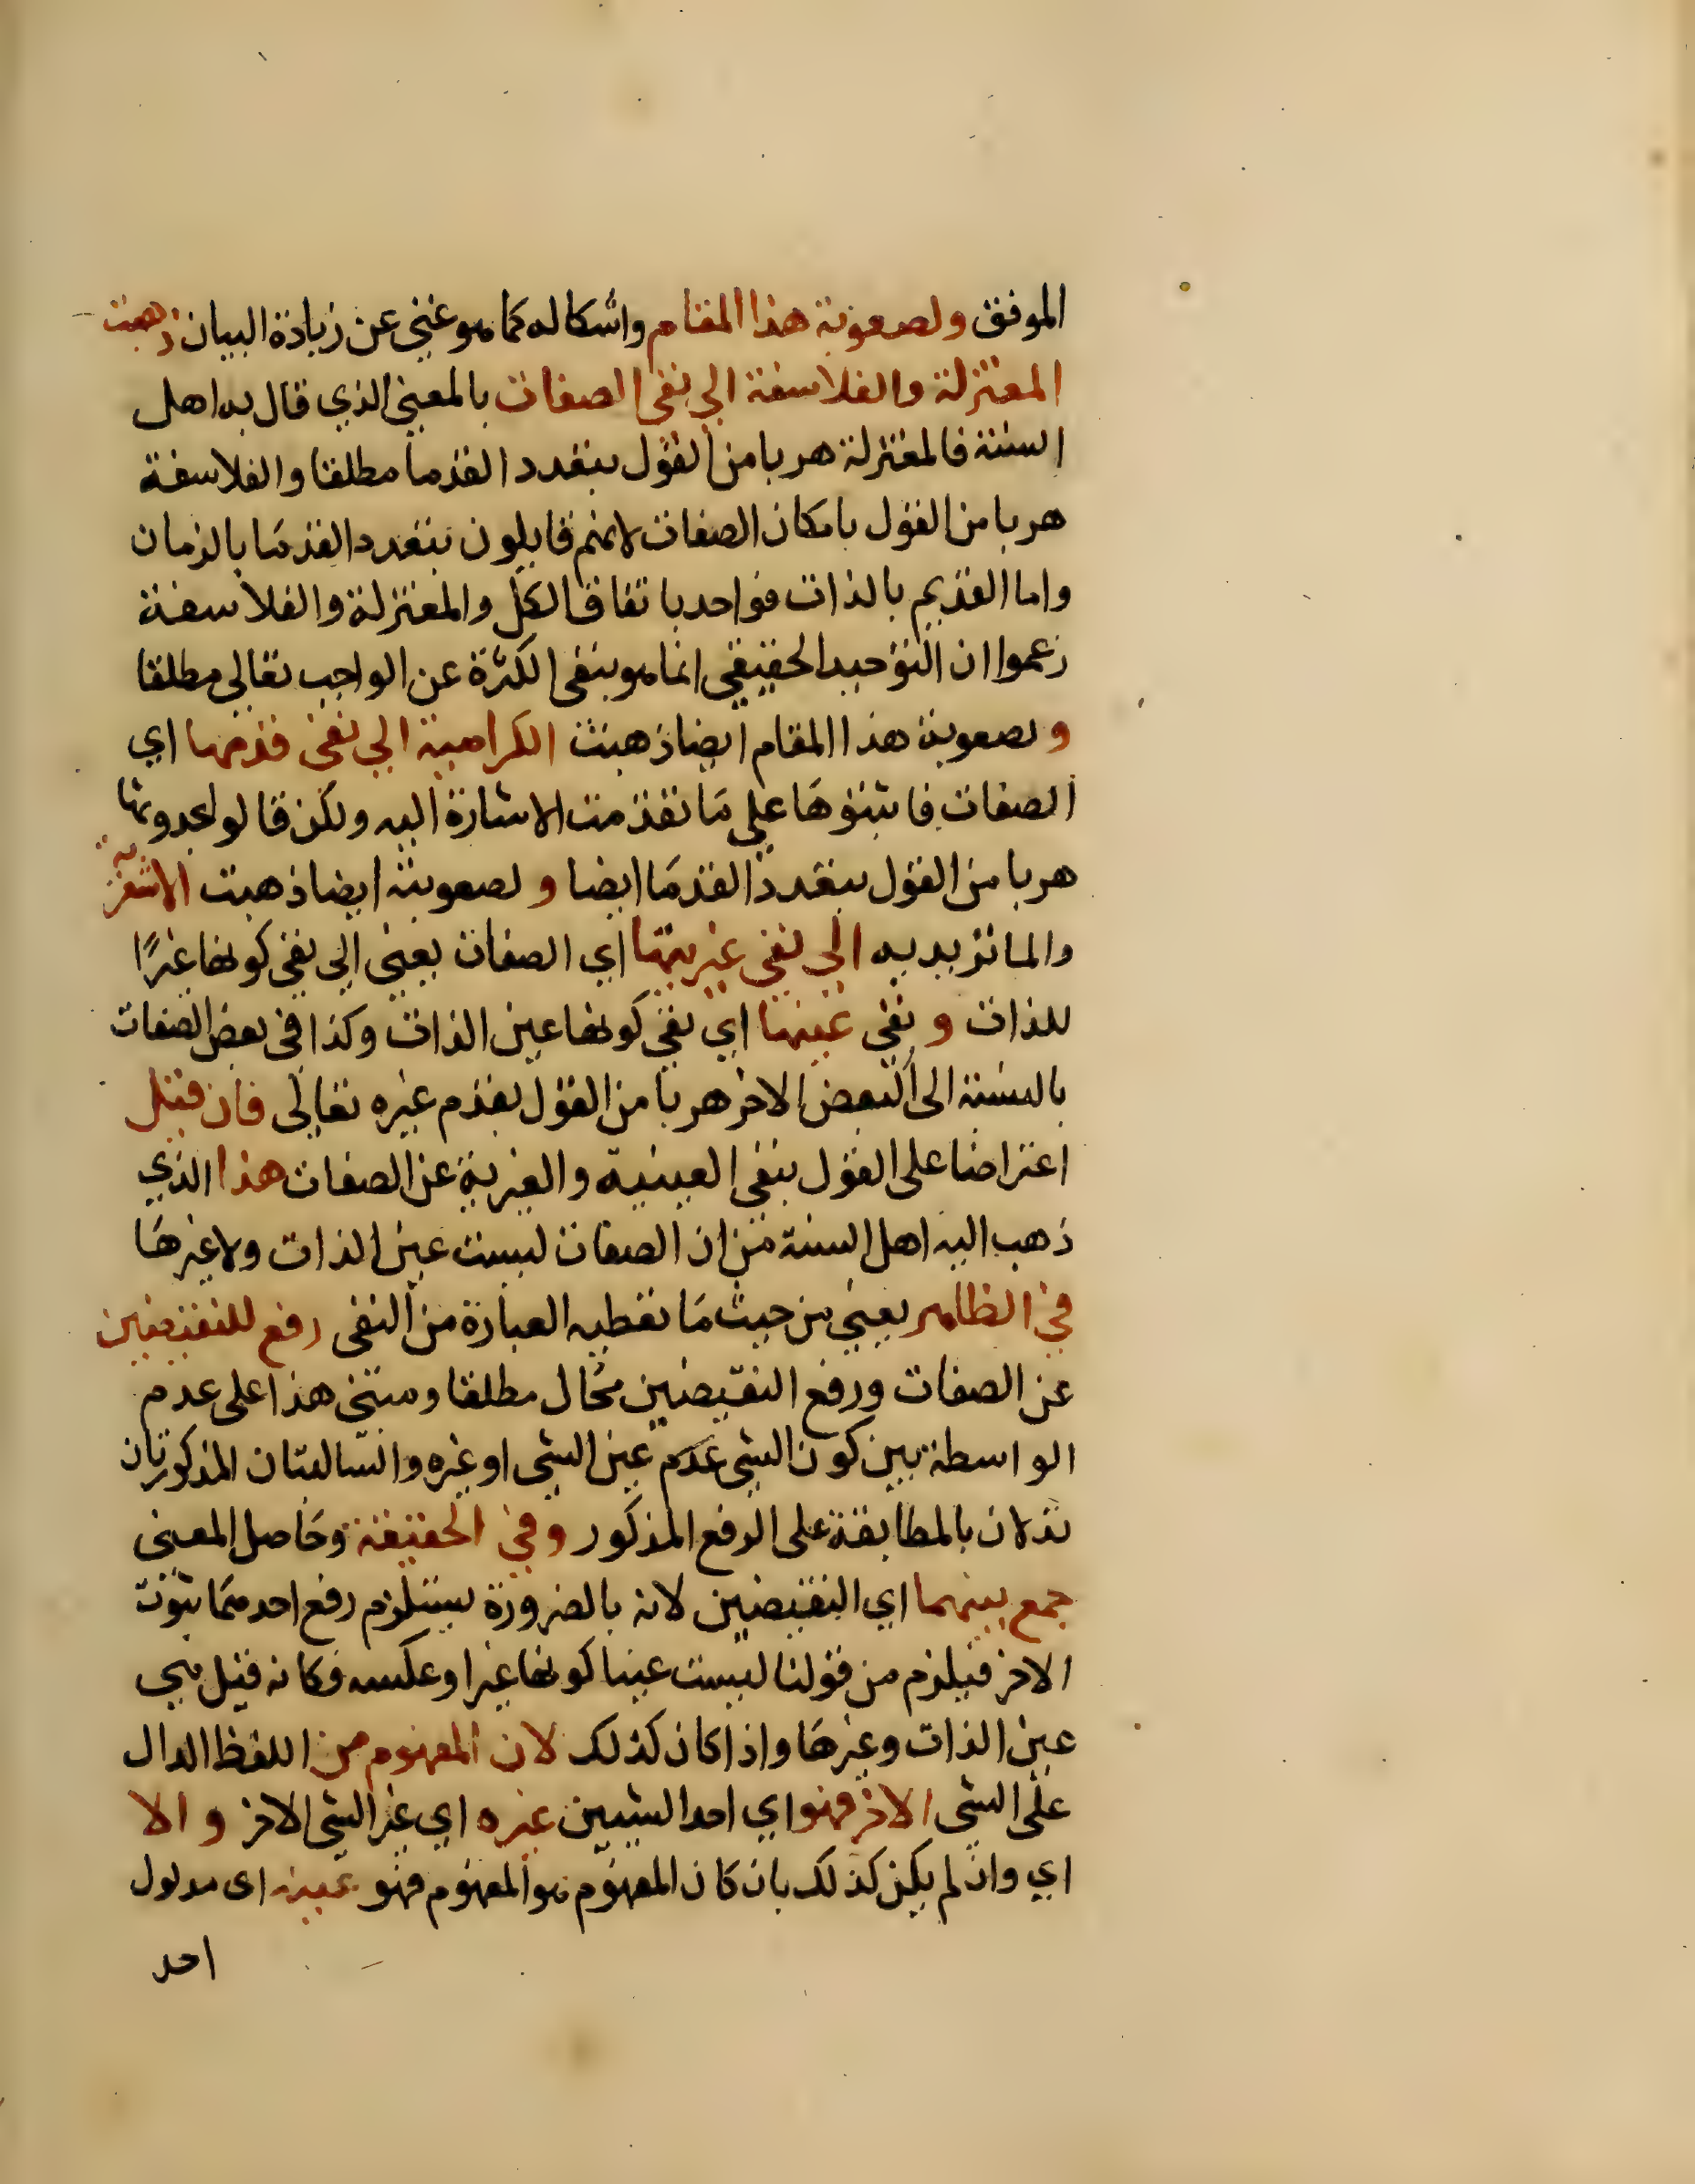 الموفق ولصعوبة هذا المقام واشكاله كما هو غني عن زيادة البيان ذهبت
المعتزلة والفلاسفة الي نفي الصفات بالمعني الذي قال به اهل
السنة فالمعتزلة هربا من القول بتعدد القدما مطلقا والفلاسفة
هربا من القول بامكان الصفات لانهم قايلون بتعدد القدما بالزمان
واما القديم بالذات فواحد باتفاق الكل والمعتزلة والفلاسفة
زعموا ان التوحيد الحقيقي انما هو بنفي الكثرة عن الواجب تعالي مطلقا
ولصعوبة هذا المقام ايضا ذهبت الكرامية الي نفي قدمها اي
الصفات فاثبتوها علي ما تقدمت الاشارة اليه ولكن قالوا بحدوثها
هربا من القول بتعدد القدما ايضا ولصعوبته ايضا ذهبت الاشعرية
والماتريديه الي نفي غيريتها اي الصفات يعني الي نفي كونها غيرًا
للذات و نفي عينها اي نفي كونها عين الذات وكذا في بعض الصفات
بالنسبة الى البعض الاخر هربا من القول بقدم غيره تعالى فان قيل
اعتراضا على القول بنفي العينية والغيرية عن الصفات هذا الذي
ذهب اليه اهل السنة من ان الصفات ليست عين الذات ولا غيرها
في الظاهر يعني من حيث ما تعطيه العبارة من النفي رفع للنقيضين
عن الصفات ورفع النقيضين محال مطلقا ومبنى هذا على عدم
الواسطة بين كون الشي عدم عين الشي او غيره والسالبتان المذكورتان
تدلان بالمطابقة على الرفع المذكور وفي الحقيقة وحاصل المعنى
جمع بينهما اي النقيضين لانه بالضرورة يستلزم رفع احدهما ثبوت
الاخر فيلزم من قولنا ليست عينا كونها غيرا وعكسه فكانه قيل هي
عين الذات وغيرها واذا كان كذلك لان المفهوم من اللفظ الدال
على الشي الاخر فهو اي احد الشيين غيره اي غير الشي الاخر والا
اي وان لم يكن كذلك بان كان المفهوم هو المفهوم فهو عينه اى مدلول
احد